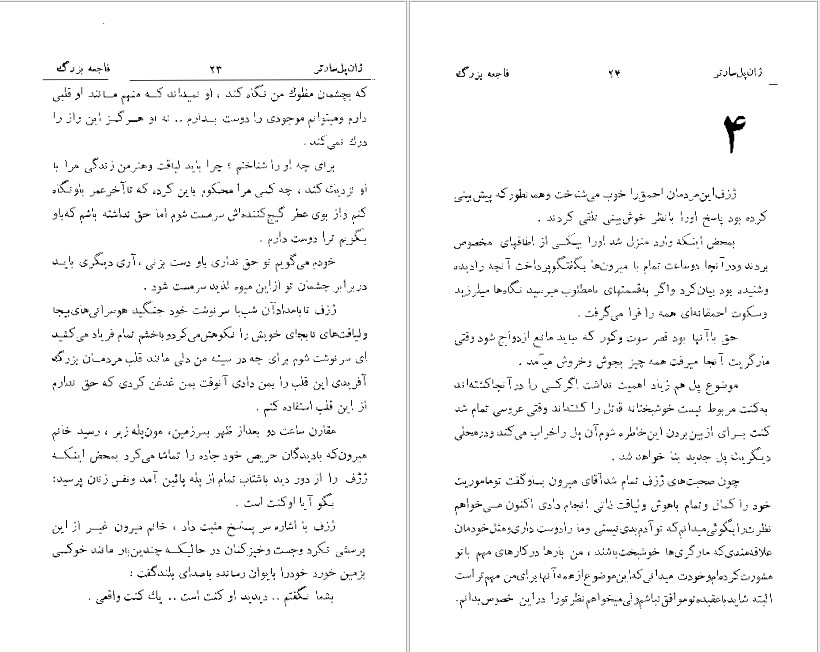 ژان‌پل‌سارتر ۲۳ فاجعه بزرگ
که بچشمان مفلوک من نگاه کند ، او نمیداند کـه منهم مـانند او قلبی
دارم ومیتوانم موجودی را دوست بـدارم .. نه او هـرگـز این راز را
درک نمی‌کند .
برای چه او را شناختم ؟ چرا باید لیاقت وهنرمن زندگی مرا با
او نزدیک کند ، چه کسی مرا محکوم باین کرده که تاآخرعمر باونگاه
کنم واز بوی عطر گیج‌کننده‌اش سرمست شوم اما حق نداشته باشم که‌باو
بگویم ترا دوست دارم .
خودم می‌گویم تو حق نداری باو دست بزنی ، آری دیگری بایـد
دربرابر چشمان تو ازاین میوه لذیذ سرمست شود .
ژزف تابامدادآن شب‌با سرنوشت خود جنگید هوسرانی‌های‌بیجا
ولیاقت‌های نابجای خویش را نکوهش‌می‌کردوباخشم تمام فریاد می‌کشید
ای سرنوشت شوم برای چه در سینه من دلی مانند قلب مردمـان بزرگ
آفریدی این قلب را بمن دادی آنوقت بمن غدغن کردی که حق ندارم
از این قلب استفاده کنم .
مقارن ساعت دو بعداز ظهر بسرزمین، مون‌پله زیر ، رسید خانم
میرون‌که بادیدگان حریص خود جاده را تماشا می‌کرد بمحض اینکـه
ژزف را از دور دید باشتاب تمام از پله پائین آمد ونفس زنان پرسید:
بگو آیا اوکنت است .
ژزف با اشاره سر پاسخ مثبت داد ، خانم میرون غیـر از این
پرسشی نکرد وجست وخیزکنان در حالیکـه چندین‌بار مانند خوکسی
بزمین خورد خودرا بایوان رسانده باصدای بلندگفت :
بشما نگفتم .. دیدید او کنت است .. یك کنت واقعی .
ژان‌پل‌سارتر ۲۴ فاجعه بزرگ
۴
ژزف‌این‌مردمان احمق‌را خوب می‌شناخت وهمانطورکه پیش‌بینی
کرده بود پاسخ اورا بانظر خوش‌بینی تلقی کردند .
بمحض اینکه وارد منزل شد اورا بیکـی از اطاقهای مخصوص
بردند ودرآنجا دوساعت تمام با میرون‌ها بگفتگوپرداخت آنچه رادیده
وشنیده بود بیان‌کرد واگر به‌قسمتهای نامطلوب میرسید نگاه‌ها میلرزید
وسکوت احمقانه‌ای همه را فرا می‌گرفت .
حق باآنها بود قصر سوت وکور که نباید مانع ازدواج شود وقتی
مارگریت آنجا میرفت همه چیز بجوش وخروش میآمد .
موضوع پل هم زیاد اهمیت نداشت اگرکسی را درآنجاکشته‌اند
به‌کنت مربوط نیست خوشبختانه قاتل را کشته‌اند وقتی عروسی تمام شد
کنت بـرای ازبین‌بردن این‌خاطره شوم‌آن پل راخراب می‌کند ودرمحلی
دیگریك پل جدید بنا خواهد شد .
چون صحبت‌های ژزف تمام شدآقای میرون بـاوگفت توماموریت
خود را کمال وتمام باهوش ولیاقت ذاتی انجام دادی اکنون مـی‌خواهم
نظرت‌رابگوئی‌میدانم‌که توآدم‌بدی‌نیستی وما رادوست داری‌ومثل‌خودمان
علاقه‌مندی‌که مارگری‌ها خوشبخت‌باشند ، من بارها درکارهای مهم باتو
مشورت‌کرده‌ام‌وخودت میدانی‌که‌این‌موضوع‌ازهمه‌آنها برای‌من مهم‌تراست
البته شایدباعقیده‌توموافق نباشم‌ولی‌میخواهم نظر تورا دراین خصوص‌بدانم.